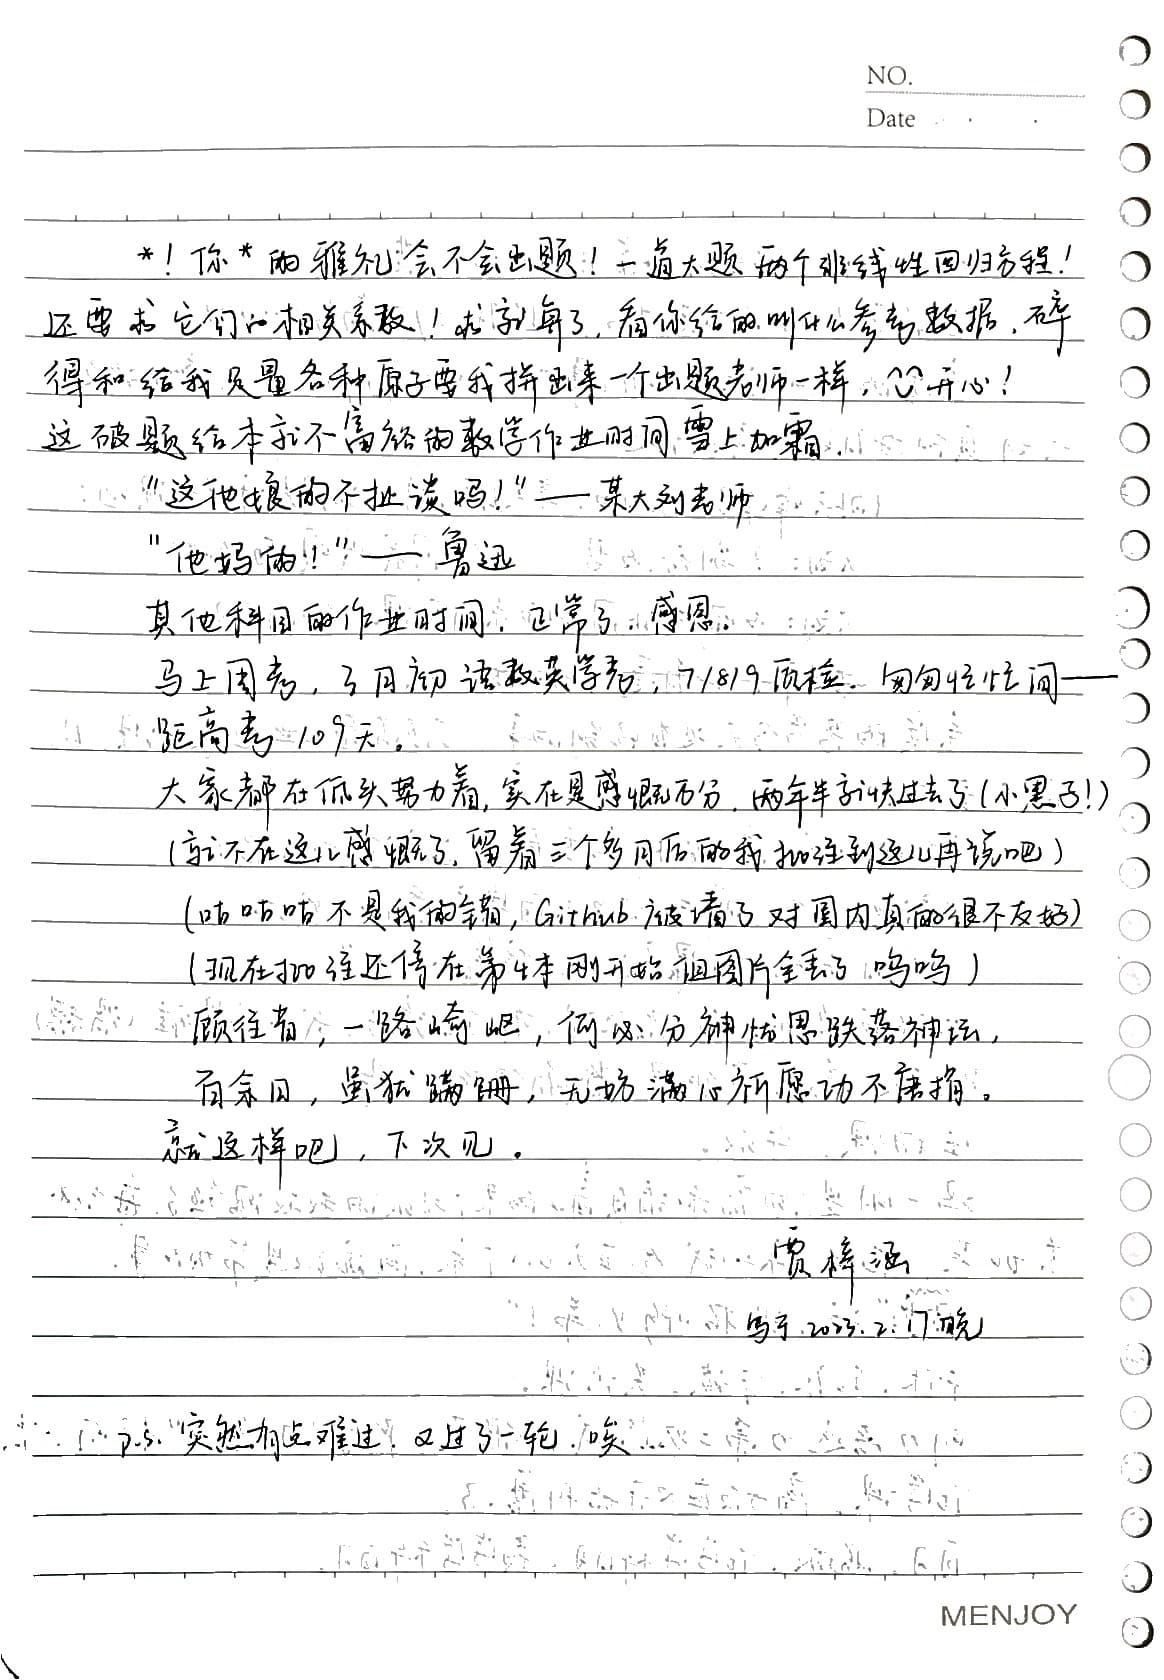 NO.
Date
*！你*的雅礼会不会出题！一道大题两个非线性回归方程！
还要求它们的相关系数！求就算了，看你给的叫什么参考数据，碎
得和给我足量各种原子要我拼出来一个出题老师一样，开心！
这破题给本就不富裕的数学作业时间雪上加霜.
"这他娘的不扯谈吗！"——某大刘老师
"他妈的！"——鲁迅
其他科目的作业时间，正常了，感恩.
马上周考，3月初语数英学考，7/8/9质检. 匆匆忙忙间——
距高考109天。
大家都在低头努力着,实在是感慨万分，两年半就快过去了(小黑子!)
(就不在这儿感慨了,留着三个多月后的我批注到这儿再说吧)
(咕咕咕不是我的错，Github被墙了对国内真的很不友好)
(现在批注还停在第4本刚开始 但图片全丢了 呜呜)
顾往昔，一路崎岖，何必分神忧思跌落神坛，
百余日，虽犹蹒跚，无妨满心祈愿功不唐捐。
就这样吧，下次见。
贾梓涵
写于.2023.2.17晚
P.S. 突然有点难过，又过了一轮，唉
MENJOY